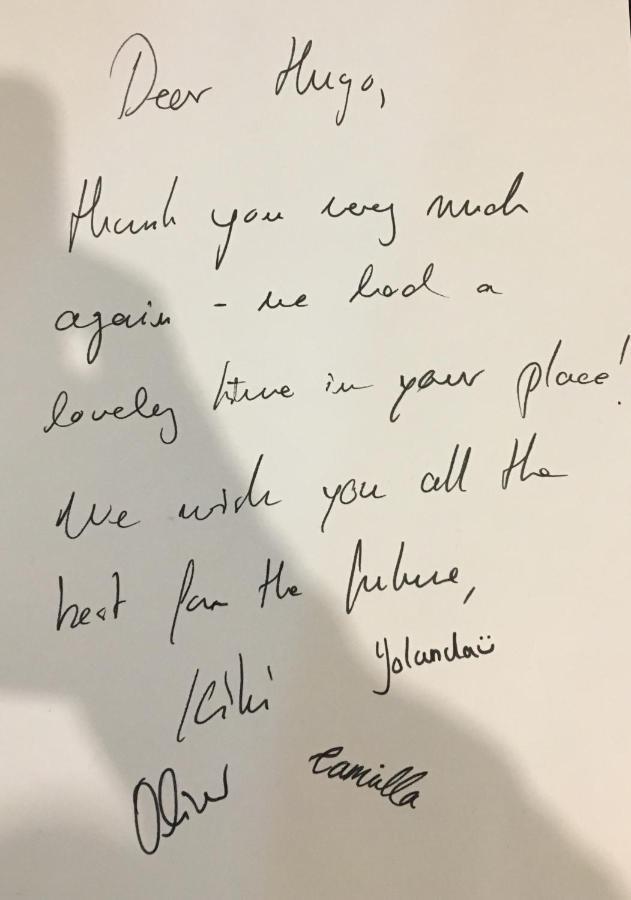 Dear Hugo,
thank you very much
again - we had a
lovely time in your place!
We wish you all the
best for the future,
Kiki Yolanda
Oliver Camilla